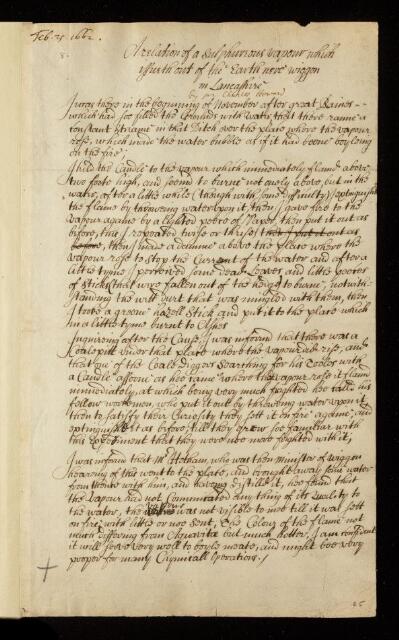 Feb. 25. 1662.
8.
A relation of a Sulphurious vapour which
issueth out of the Earth nere Wiggon
in Lancashire
by mr Charles Howard
I was there in the beginning of November after great Raines
which had so filled the Grounds with water, that there runne a
constant Streame in that Ditch over the place where the vapour
rose, which made the water bubble as if it had beene boyleing
on the fire;
I held the Candle to the vapour which immediately flamed above
two foote high, and seemd to burne not onely above, but in the
water, after a little while (though with some difficulty) I extinguisht
the flame by throweing water upon it, then I gave fire to the
vapour againe by a lighted peece of Paper, then put it out as
before, this I repeated twise or thrise, then I put it out as
before, then I made a damme above the place where the
vapour rose to stop the Current of the water and after a
little tyme I perceived some dead Leaves and little peeces
of sticks (that were fallen out of the hedg) to burne, notwith-
standing the wett durt that was mingled with them, then
I tooke a greene hasell stick and put it to the place which
in a little tyme burnt to Ashes
Inquiring after the Cause, I was informd that there was a
Coalepitt under that place where the vapour did rise, and
that one of the Coale Diggers Searching for his Cooler with
a Candle, assoone as hee came where the vapour rose it flamd
immediately, at which being very much frighted hee calld his
fellow workmen, who put it out by throwing water upon it,
then to satisfy their Curiosity they sett it on fire againe, and
extinguisht it as before, till they grew soe familiar with
this Experiment that they were noe more frighted with it,
I was informd that Mr Hotham, who was then Minister of Wiggon
hearing of this went to the place, and brought away some water
from thence with him, and having distilld it, hee found that
the vapour had not Communicated any thing of its quality to
the water, the vapour was not visible to mee till it was sett
on fire, with little or noe sent, The Colour of the flame not
much differing from Aquavitæ but much hotter, I am confident
it will serve very well to boyle meate, and might bee very
proper for many Chymicall Operations.
25